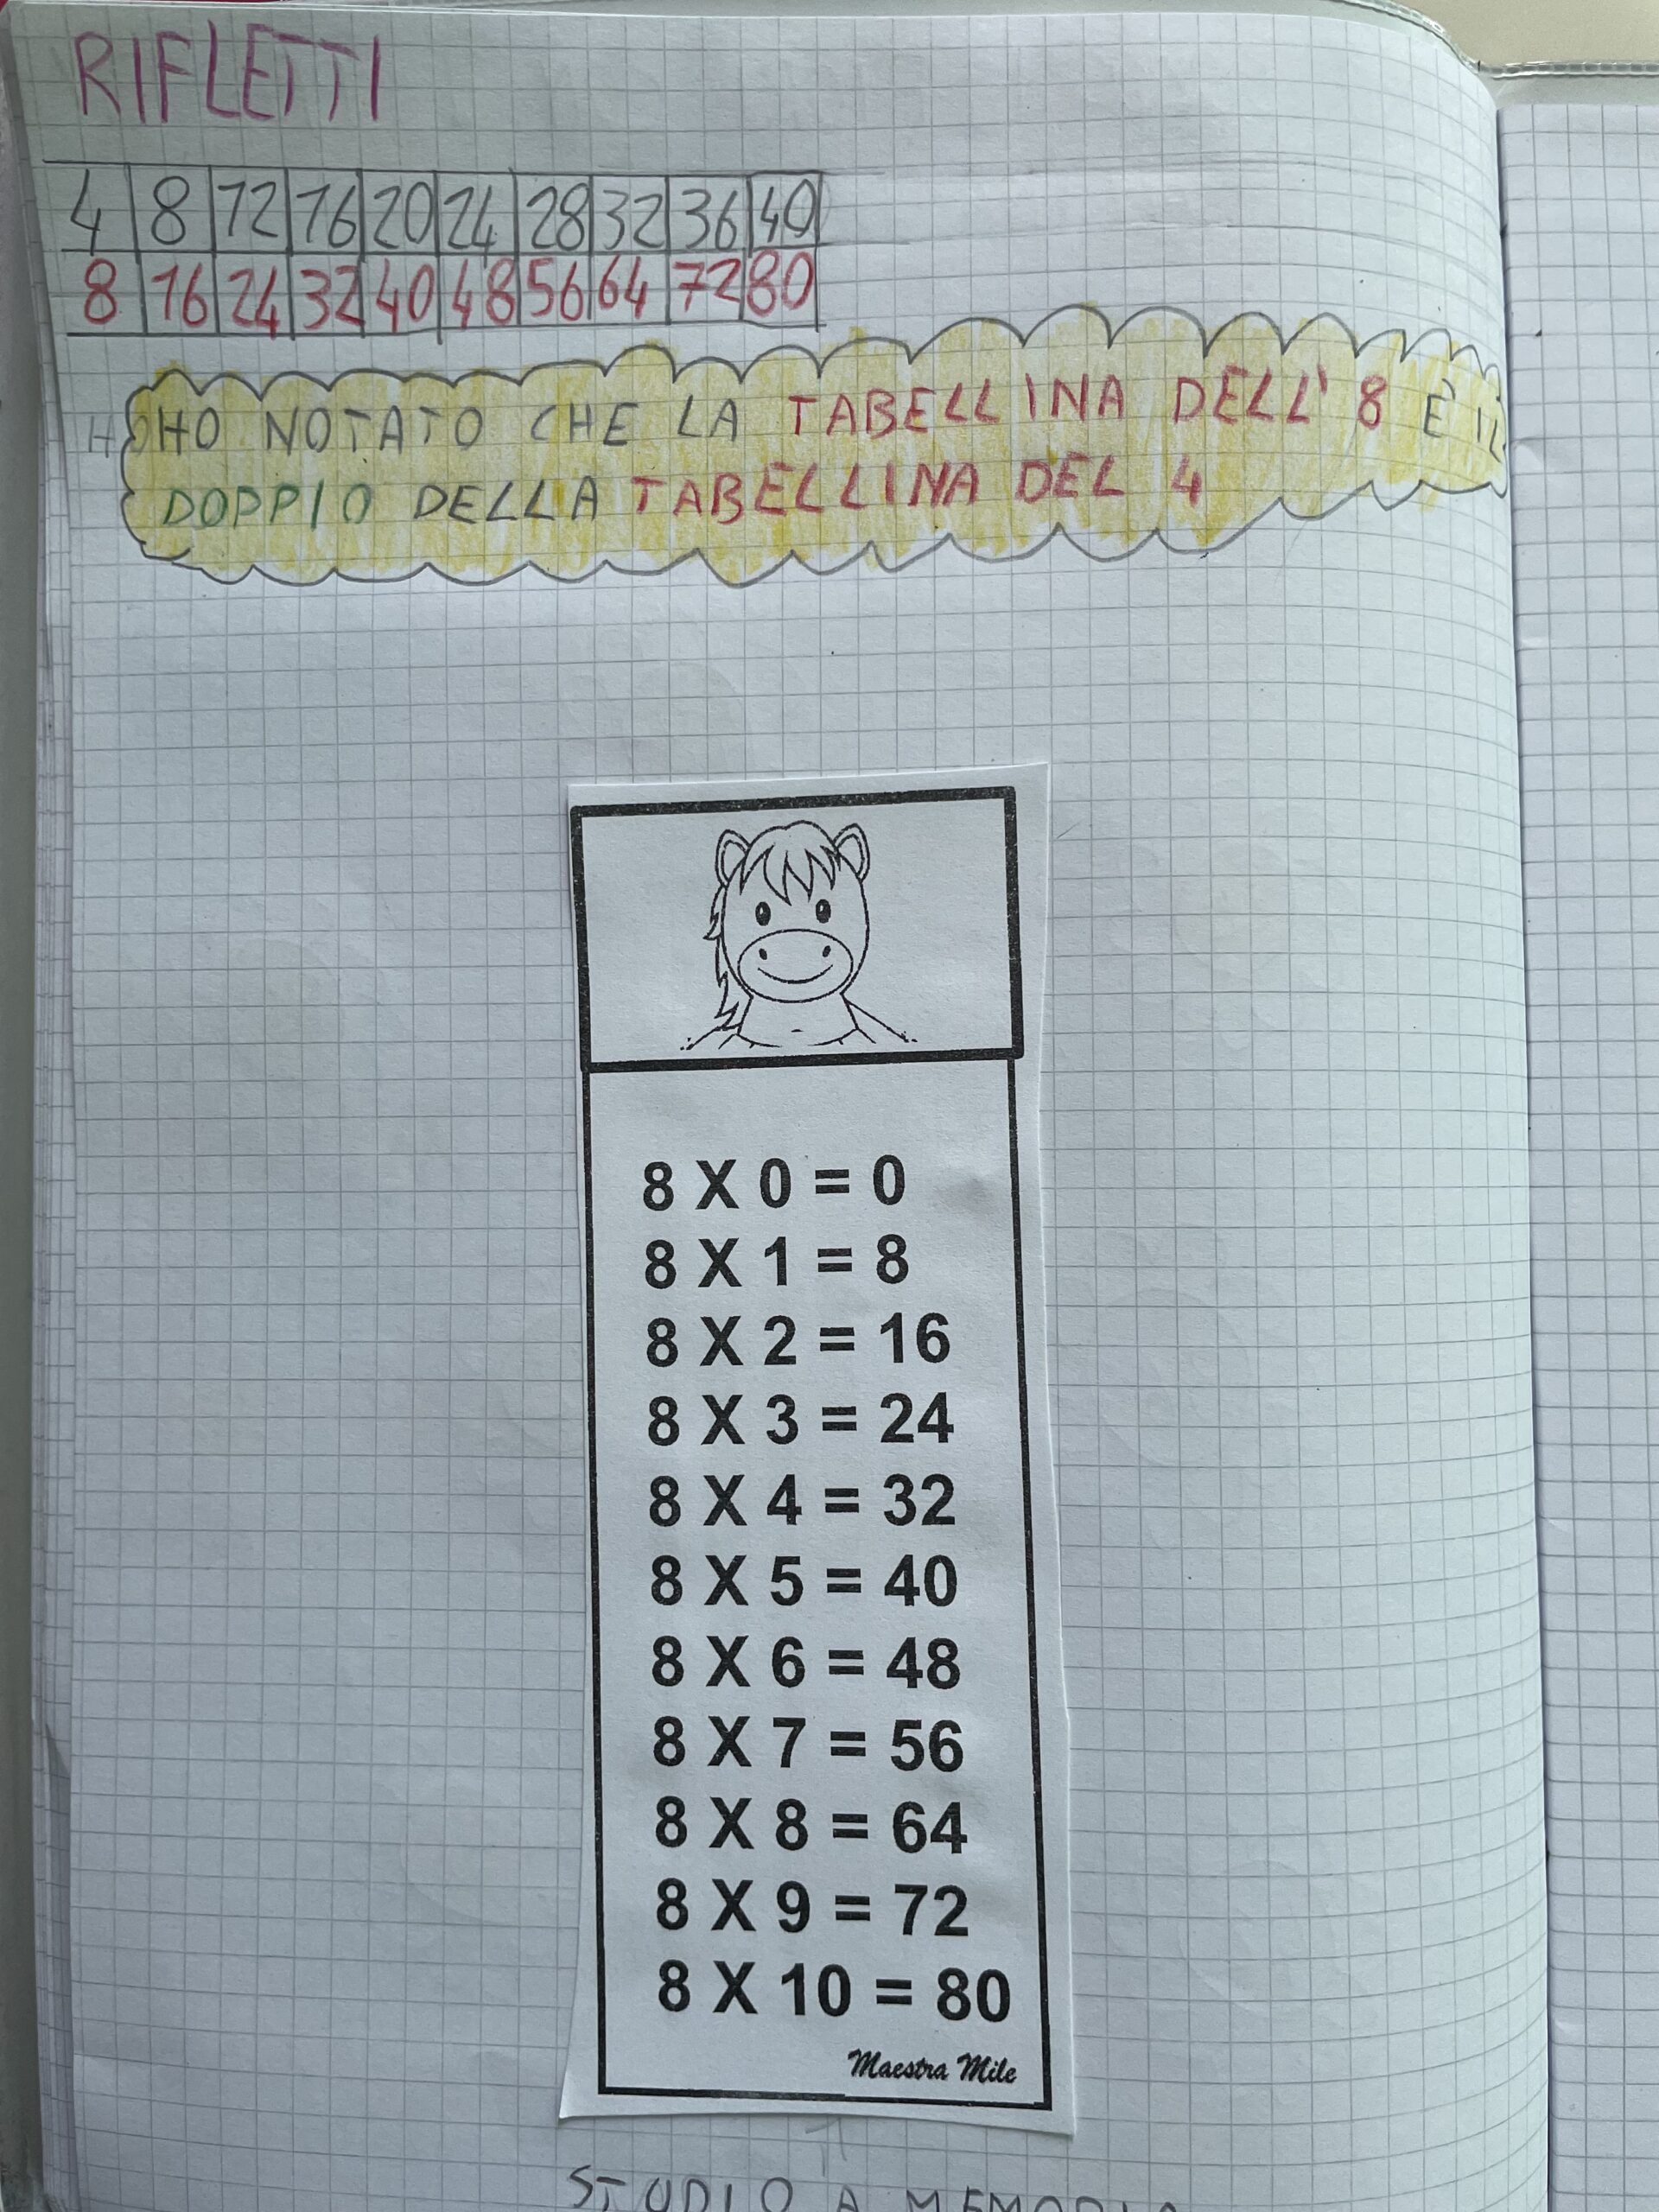 RIFLETTI
4 8 12 16 20 24 28 32 36 40
8 16 24 32 40 48 56 64 72 80
HO NOTATO CHE LA TABELLINA DELL' 8 È IL
DOPPIO DELLA TABELLINA DEL 4
8 X 0 = 0
8 X 1 = 8
8 X 2 = 16
8 X 3 = 24
8 X 4 = 32
8 X 5 = 40
8 X 6 = 48
8 X 7 = 56
8 X 8 = 64
8 X 9 = 72
8 X 10 = 80
Maestra Mile
STUDIO A MEMORIA